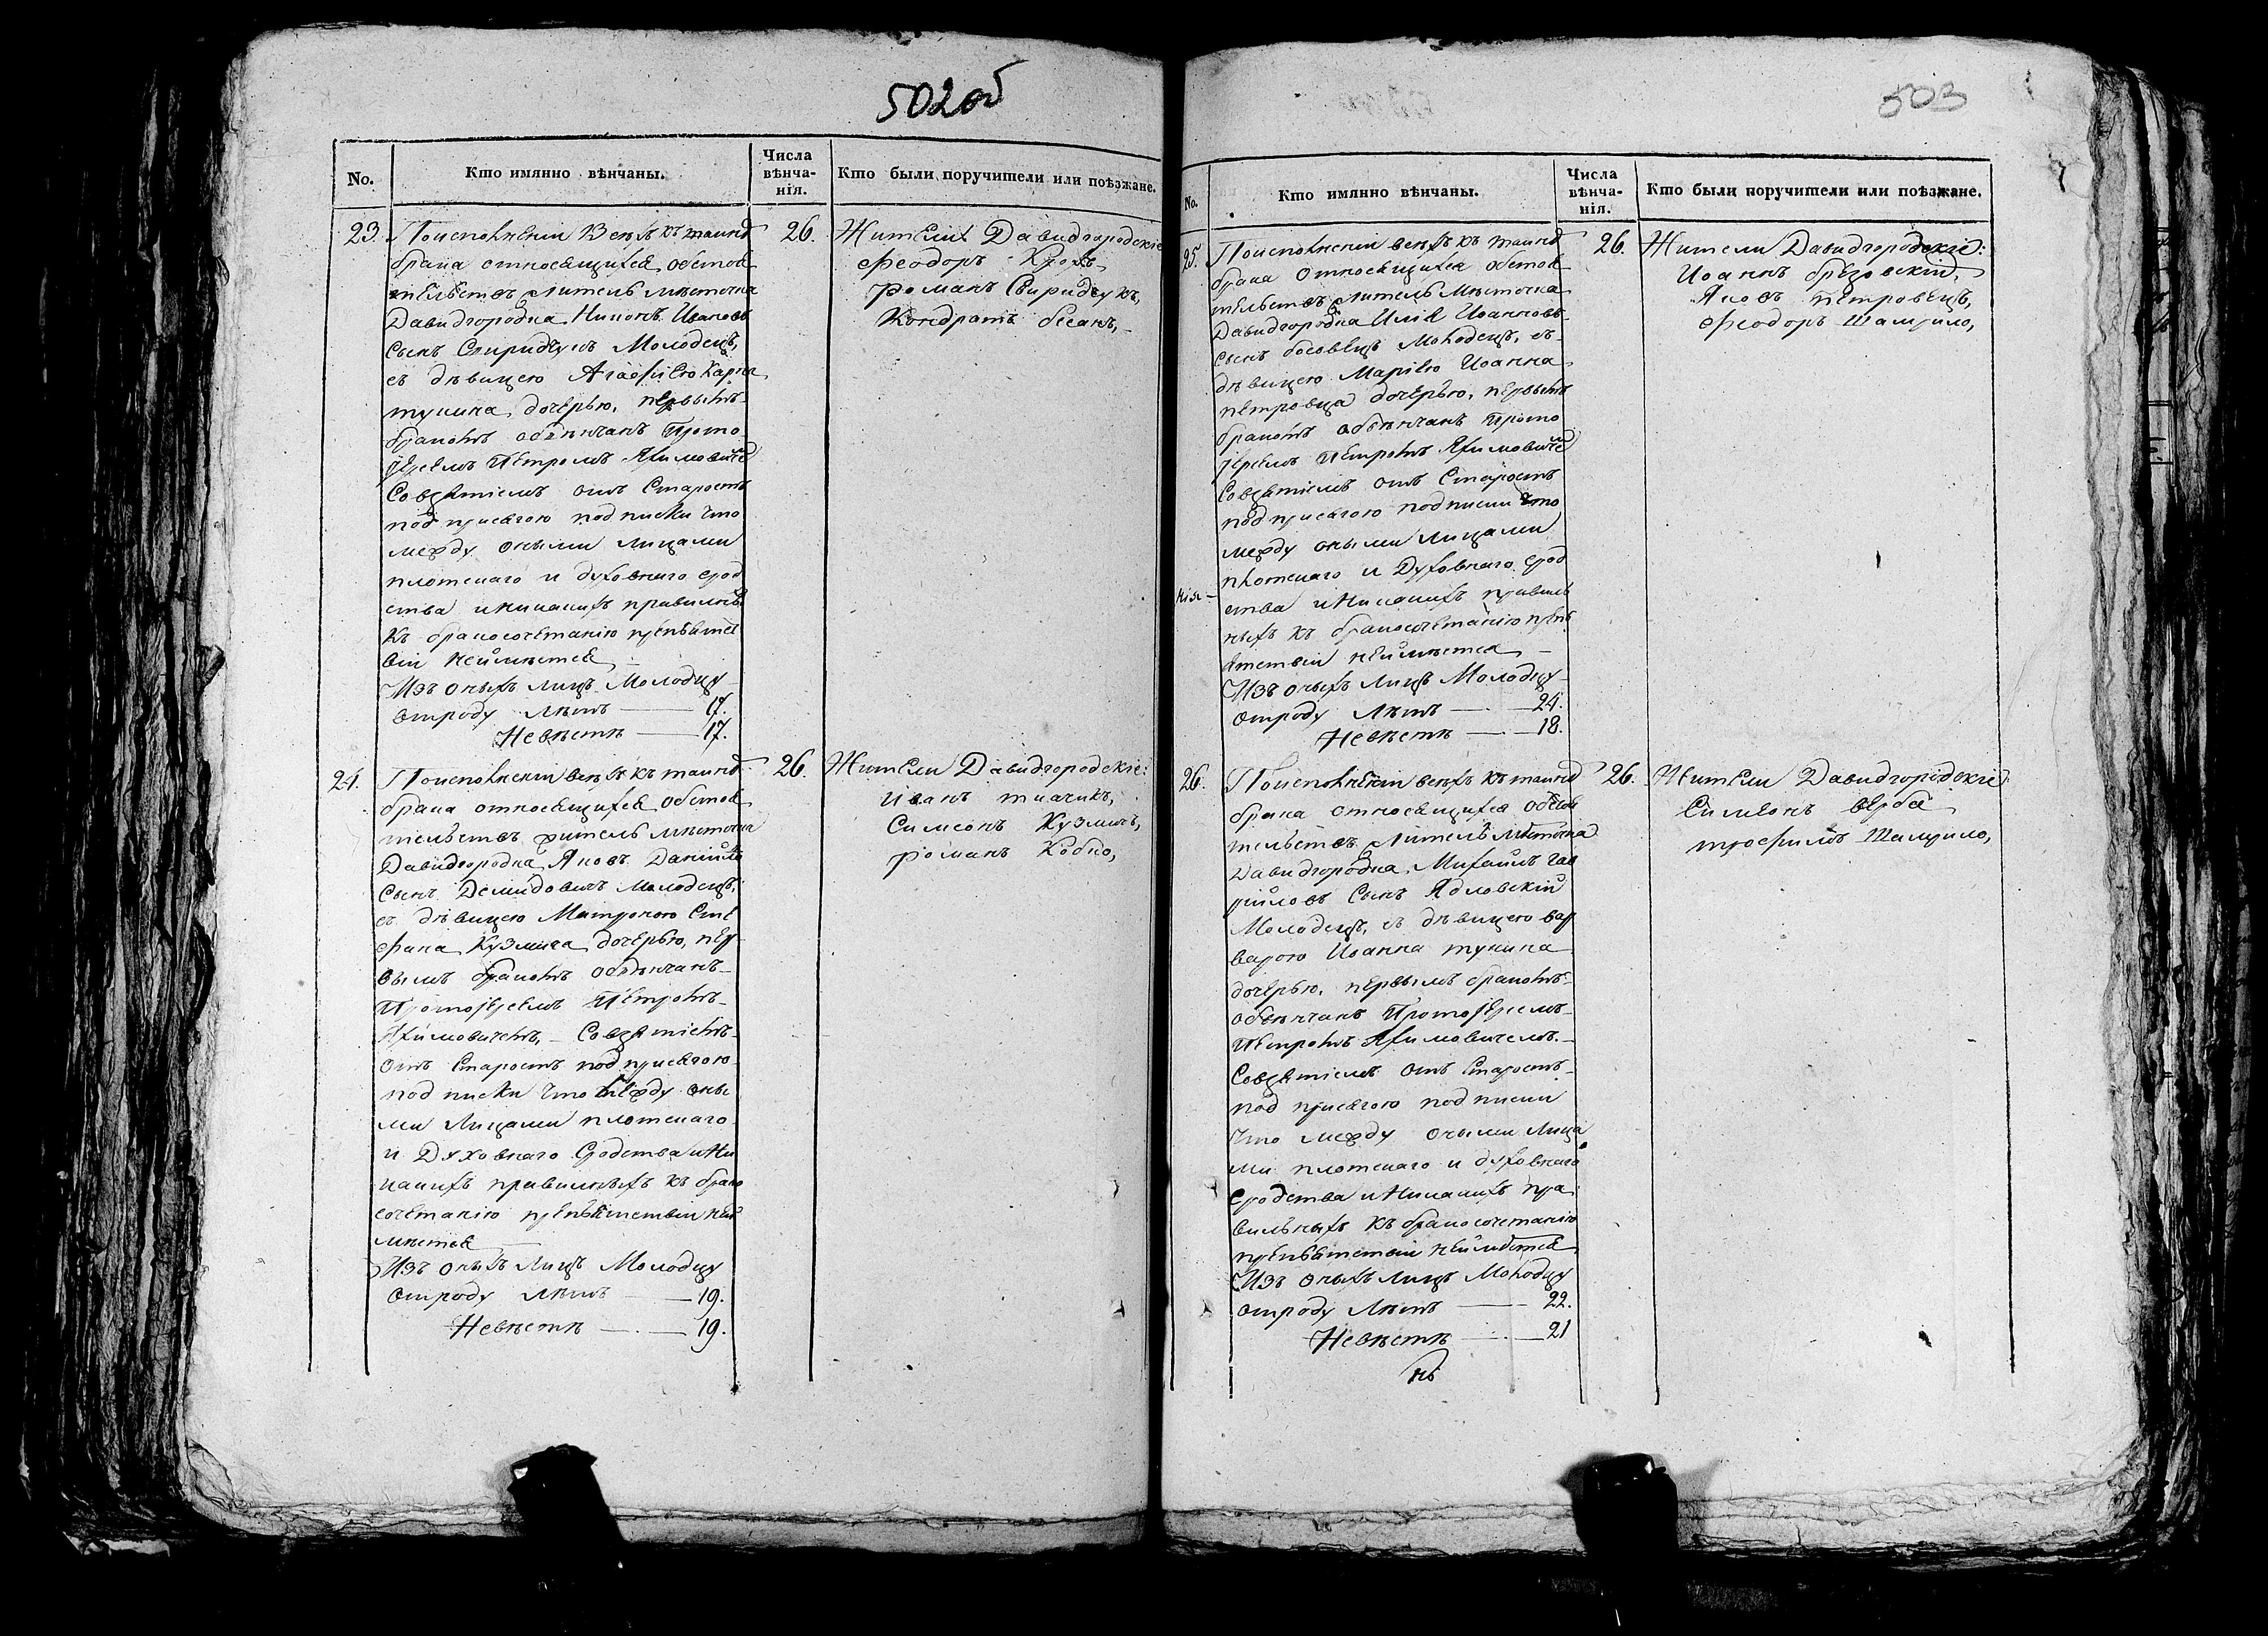 502 об
No.
Кто имянно вѣнчаны.
Числа вѣнча-нія.
Кто были поручители или поѣзжане.
23.
По исполненіи всѣхъ къ таинст
брака относящихся обстоя
тельствъ житель мѣстечка
Давидгородка Никонъ Ивановъ
сынъ Спиридчукъ Молодецъ,
съ дѣвицею Агафіею Карпа
тукина дочерью, первымъ
бракомъ обвѣнчанъ Прото
іереемъ Петромъ Яхимовиче
Совзятіемъ отъ Старостъ
подприсягою подписки что
между оными лицами
плотскаго и духовнаго срод
ства и никакихъ правильны
къ бракосочетанію препятст
вій неимѣется
Изъ оныхъ лицъ Молодцу
отроду лѣтъ — 17.
Невѣстѣ — 17.
26.
Жители Давидгородскіе
Феодоръ Крохъ
Романъ Свиридчукъ,
Кондратъ Бсанъ,
24.
По исполненіи всѣхъ къ таинст
брака относящихся обстоя
тельствъ житель мѣстечка
Давидгородка Яковъ Даніило
сынъ Демидовичъ Молодецъ,
съ дѣвицею Матроною Сте
фана Кузмича дочерью, пер
вымъ бракомъ обвѣнчанъ
Протоіереемъ Петромъ
Яхимовичемъ, Совзятіемъ
отъ Старостъ подприсягою
подписки что между оны
ми лицами плотскаго
и Духовнаго Сродства и ни
какихъ правильныхъ къ брако
сочетанію препятствій неи
мѣется
Изъ оныхъ лицъ Молодцу
отроду лѣтъ — 19.
Невѣстѣ — 19.
26.
Жители Давидгородскіе:
Иванъ ткачикъ,
Симеонъ Кузмичъ,
Романъ Кобко,
503
No.
Кто имянно вѣнчаны.
Числа вѣнча-нія.
Кто были поручители или поѣзжане.
25.
По исполненіи всѣхъ къ таинст
брака относящихся обстоя
тельствъ житель мѣстечка
Давидгородка Илія Иоанновъ
сынъ босовецъ Молодецъ, съ
дѣвицею Маріею Иоанна
петровца дочерью, первымъ
бракомъ обвѣнчанъ Прото
іереемъ Петромъ Яхимовиче
Совзятіемъ отъ Старостъ
подприсягою подписки что
между оными лицами
плотскаго и Духовнаго срод
ства и никакихъ правиль
ныхъ къ бракосочетанію преп
ятствій неимѣется
Изъ оныхъ лицъ Молодцу
отроду лѣтъ — 24.
Невѣстѣ — 18.
26.
Жители Давидгородскіе:
Иоаннъ брезовскій,
Яковъ петровецъ,
Феодоръ Шамрило,
нія
26.
По исполненіи всѣхъ къ таинст
брака относящихся обстоя
тельствъ житель мѣстечка
Давидгородка, Михаилъ гав
риловъ Сынъ Ядловскій
Молодецъ, съ дѣвицею вар
варою Иоанна тукина
дочерью, первымъ бракомъ
обвѣнчанъ Протоіереемъ
Петромъ Яхимовичемъ.
Совзятіемъ отъ Старостъ
под присягою подписки
что между оными лица
ми плотскаго и духовнаго
сродства и никакихъ пра
вильныхъ къ бракосочетанію
препятствій неимѣется
Изъ оныхъ лицъ Молодцу
отроду лѣтъ — 22.
Невѣстѣ — 21
26.
Жители Давидгородскіе
Симеонъ верба
трофимъ Шамрило,